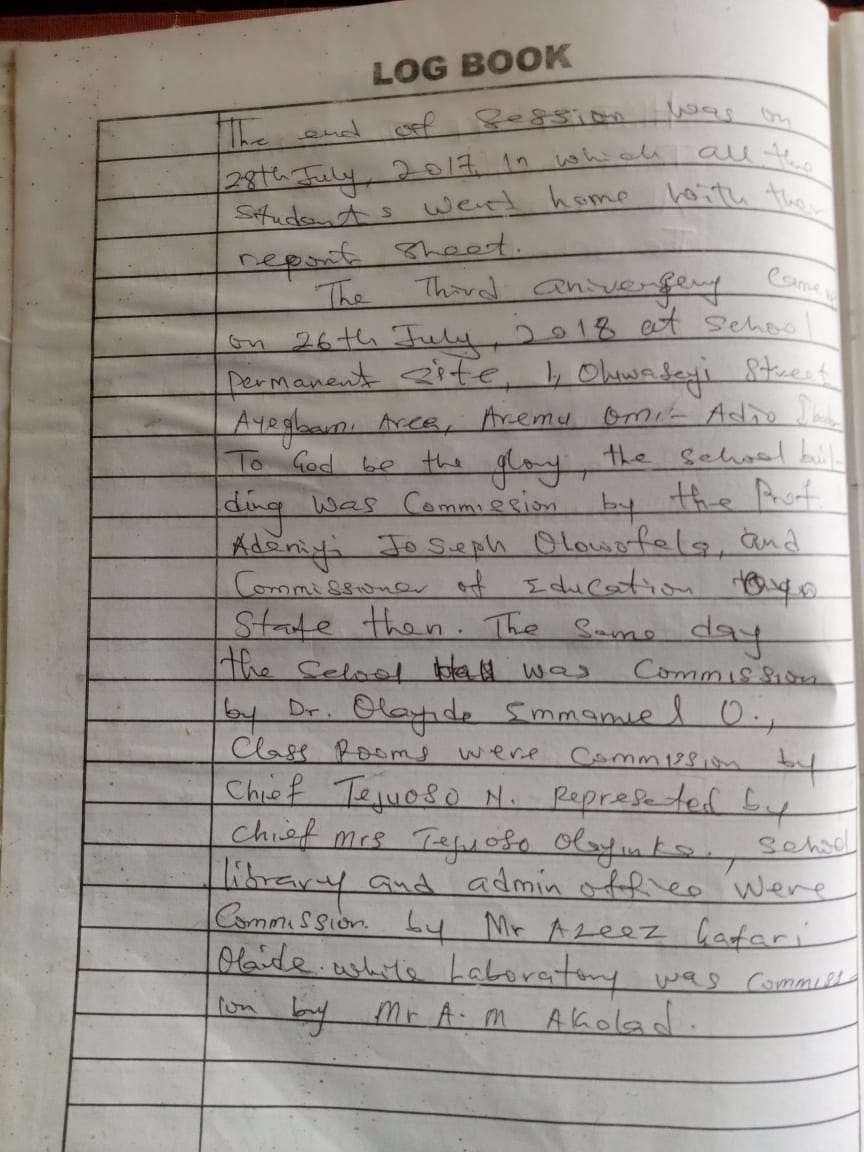 LOG BOOK
The end of Session was on
28th July, 2017 In which all the
Students went home with their
report sheet.
The Third aniversery Came
on 26th July, 2018 at School
permanent Site, 1, Oluwaseyi Street
Ayegbami Area, Aremu Omi- Adio
To God be the glory, the school buil-
ding was Commission by the Prof.
Adeniyi Joseph Olowofela, and
Commissioner of Education Oyo
State then. The Same day
the School Hall was Commission
by Dr. Olayide Emmanuel O.,
Class Rooms were Commission by
Chief Tejuoso N. Represeted by
Chief Mrs Tejuoso Olayinka., School
library and admin office were
Commission by Mr Azeez Gafari
Olaide. while Laboratory was Commiss
ion by Mr A. M Akolad.